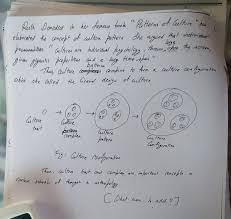 Ruth Benedict in her famous book "Patterns of Culture" has
elaborated the concept of culture pattern. She argued that
"Cultures are individual psychology, thrown the screen,
given gigantic proportions and a long time span."
They Culture complexes combine to form a culture configuration
which she called the Grand design of culture
Culture trait
Culture complex
Culture pattern
Culture Configuration
Eg: Culture Configuration
Thus, culture trait and complex are important concepts in
various schools of thought in anthropology
[What more to add?]